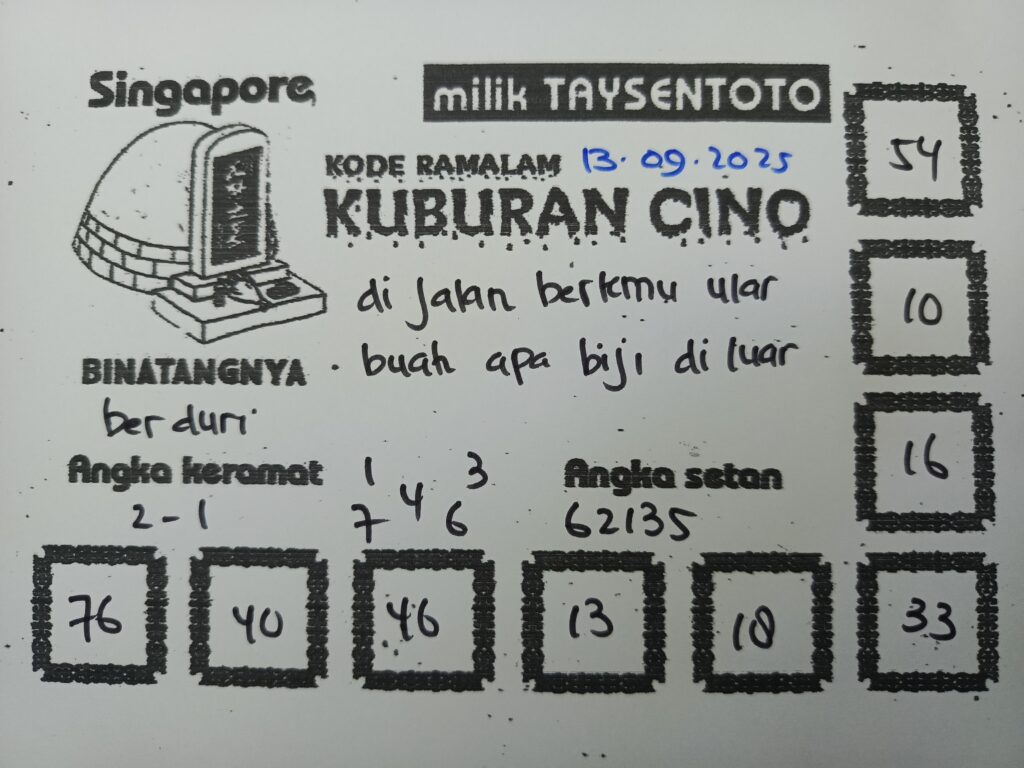 Singapore
milik TAYSENTOTO
KODE RAMALAM 13.09.2025
KUBURAN CINO
di jalan bertemu ular
BINATANGNYA . buah apa biji di luar
ber duri
Angka keramat 1 3 Angka setan
2 - 1 7 4 6 62135
54
10
16
76 40 46 13 18 33